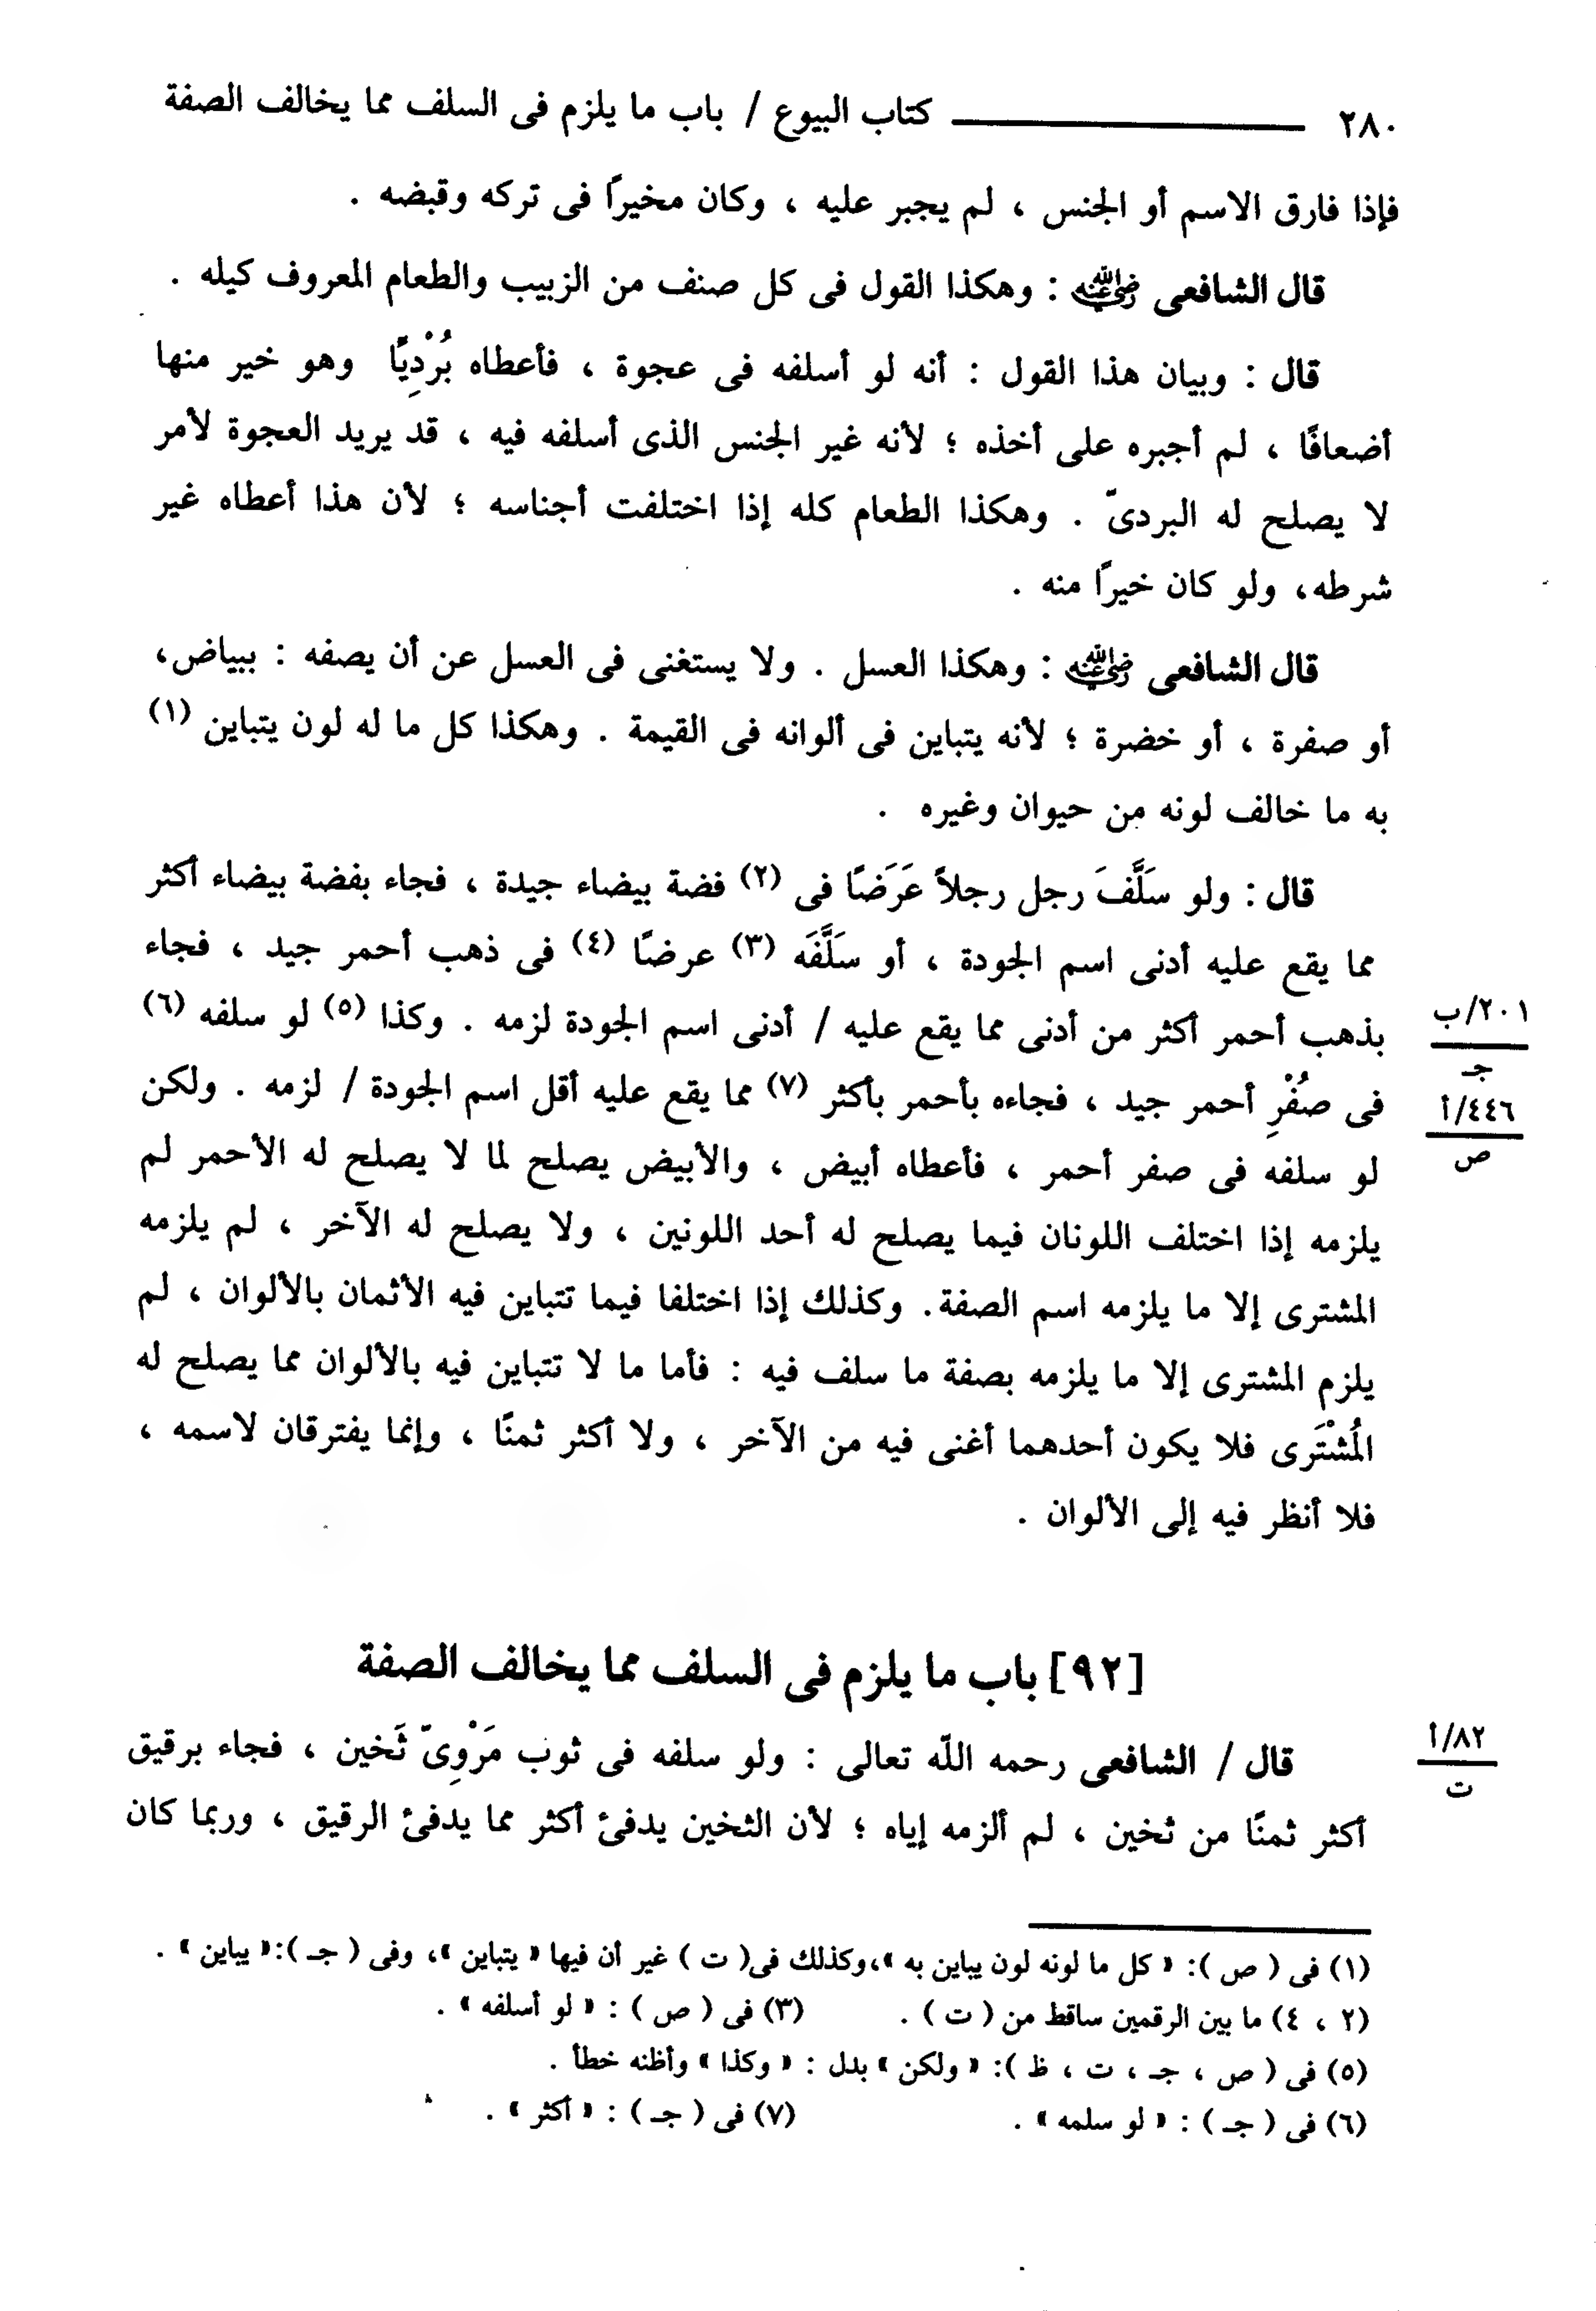 ٢٨٠ كتاب البيوع / باب ما يلزم فى السلف مما يخالف الصفة
فإذا فارق الاسم أو الجنس ، لم يجبر عليه ، وكان مخيراً فى تركه وقبضه .
قال الشافعى رضي الله عنه : وهكذا القول فى كل صنف من الزبيب والطعام المعروف كيله .
قال : وبيان هذا القول : أنه لو أسلفه فى عجوة ، فأعطاه بُرْدِيًّا وهو خير منها
أضعافًا ، لم أجبره على أخذه ؛ لأنه غير الجنس الذى أسلفه فيه ، قد يريد العجوة لأمر
لا يصلح له البردىّ . وهكذا الطعام كله إذا اختلفت أجناسه ؛ لأن هذا أعطاه غير
شرطه، ولو كان خيراً منه .
قال الشافعى رضي الله عنه : وهكذا العسل . ولا يستغنى فى العسل عن أن يصفه : ببياض،
أو صفرة ، أو خضرة ؛ لأنه يتباين فى ألوانه فى القيمة . وهكذا كل ما له لون يتباين (١)
به ما خالف لونه من حيوان وغيره .
قال : ولو سَلَّفَ رجل رجلاً عَرَضًا فى (٢) فضة بيضاء جيدة ، فجاء بفضة بيضاء أكثر
مما يقع عليه أدنى اسم الجودة ، أو سَلَّفَه (٣) عرضًا (٤) فى ذهب أحمر جيد ، فجاء
بذهب أحمر أكثر من أدنى مما يقع عليه / أدنى اسم الجودة لزمه . وكذا (٥) لو سلفه (٦)
٢٠١/ب
جـ
فى صُفْرِ أحمر جيد ، فجاءه بأحمر بأكثر (٧) مما يقع عليه أقل اسم الجودة / لزمه . ولكن
٤٤٦/أ
ص
لو سلفه فى صفر أحمر ، فأعطاه أبيض ، والأبيض يصلح لما لا يصلح له الأحمر لم
يلزمه إذا اختلف اللونان فيما يصلح له أحد اللونين ، ولا يصلح له الآخر ، لم يلزمه
المشترى إلا ما يلزمه اسم الصفة. وكذلك إذا اختلفا فيما تتباين فيه الأثمان بالألوان ، لم
يلزم المشترى إلا ما يلزمه بصفة ما سلف فيه : فأما ما لا تتباين فيه بالألوان مما يصلح له
المُشْتَرى فلا يكون أحدهما أغنى فيه من الآخر ، ولا أكثر ثمنًا ، وإنما يفترقان لاسمه ،
فلا أنظر فيه إلى الألوان .
[٩٢] باب ما يلزم فى السلف مما يخالف الصفة
قال / الشافعى رحمه اللّه تعالى : ولو سلفه فى ثوب مَرْوِىّ ثَخين ، فجاء برقيق
٨٢/أ
ت
أكثر ثمنًا من ثخين ، لم ألزمه إياه ؛ لأن الثخين يدفئ أكثر مما يدفئ الرقيق ، وربما كان
(١) فى ( ص ): « كل ما لونه لون يباين به »،وكذلك فى( ت ) غير أن فيها « يتباين »، وفى ( جـ ):« يباين » .
(٢ ، ٤) ما بين الرقمين ساقط من ( ت ) . (٣) فى ( ص ) : « لو أسلفه » .
(٥) فى ( ص ، جـ ، ت ، ظ ): « ولكن » بدل : « وكذا » وأظنه خطأ .
(٦) فى ( جـ ) : « لو سلمه » . (٧) فى ( جـ ) : « أكثر » .